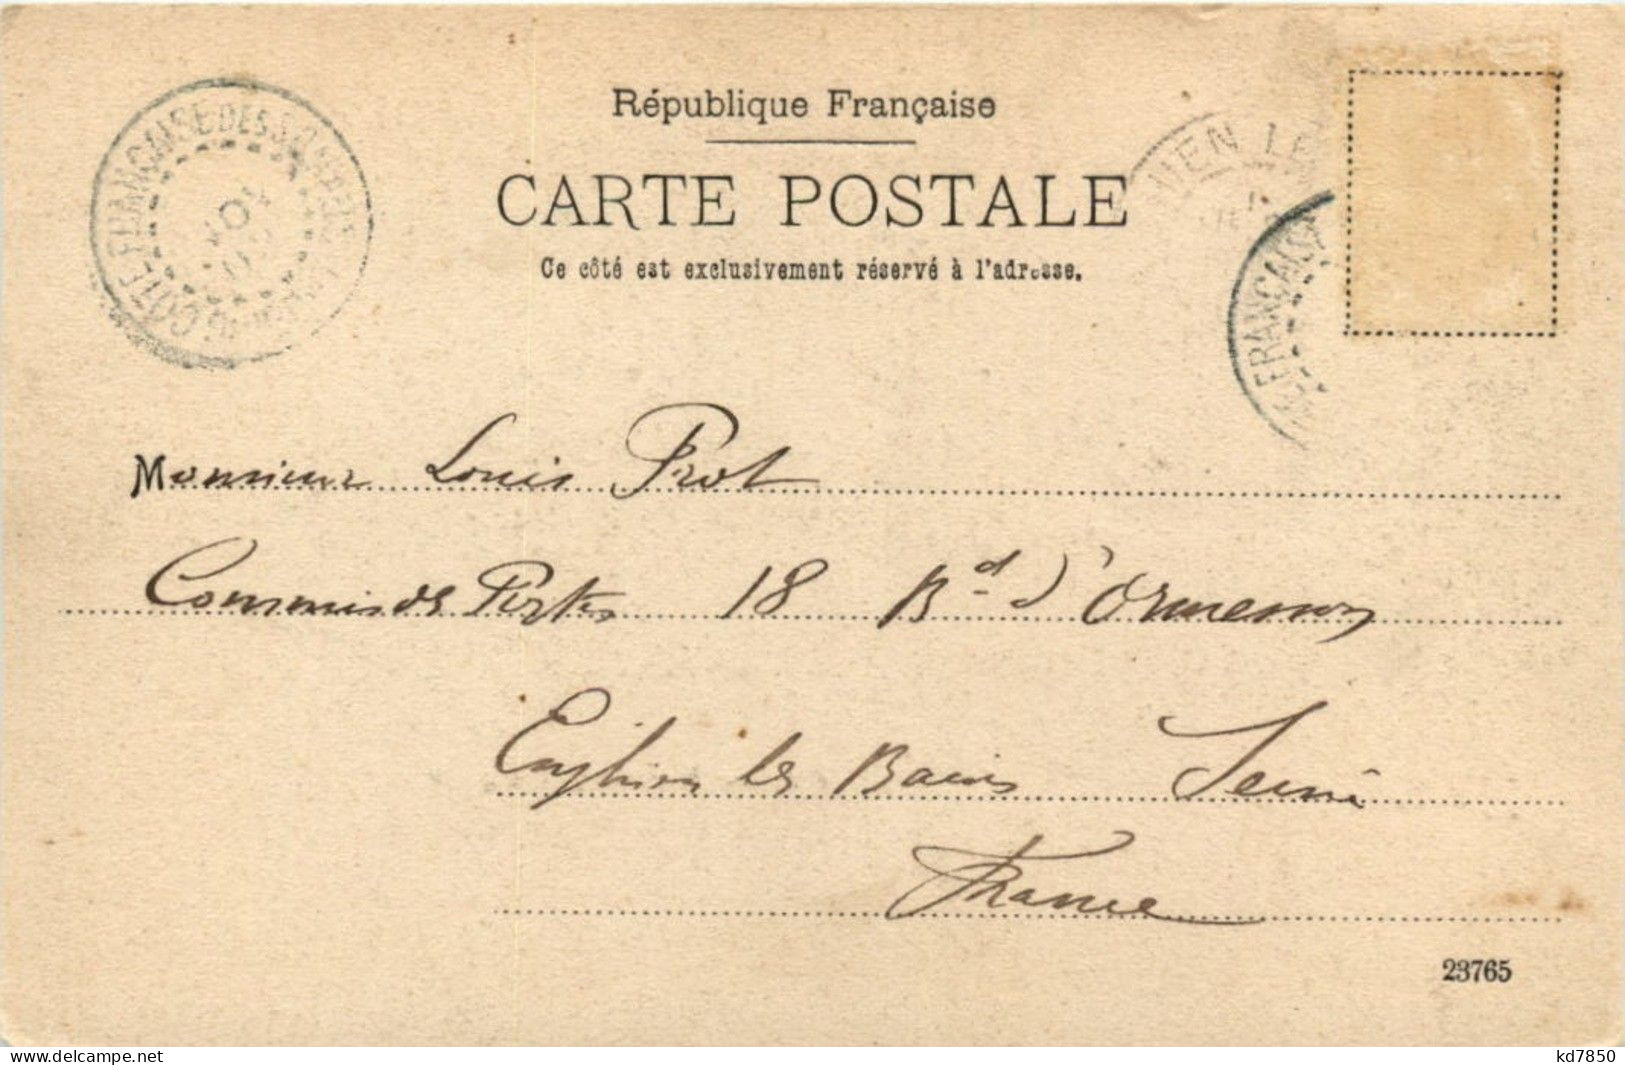 République Française
CARTE POSTALE
Ce côté est exclusivement réservé à l'adresse.
COTE FRANÇAISE DES SOMALIS
HIEN LE
FRANÇAISE
Monsieur Louis Prot
Commis de Postes 18 Bd d'Ormesson
Enghien les Bains Seine
France
23765
kd7850
www.delcampe.net